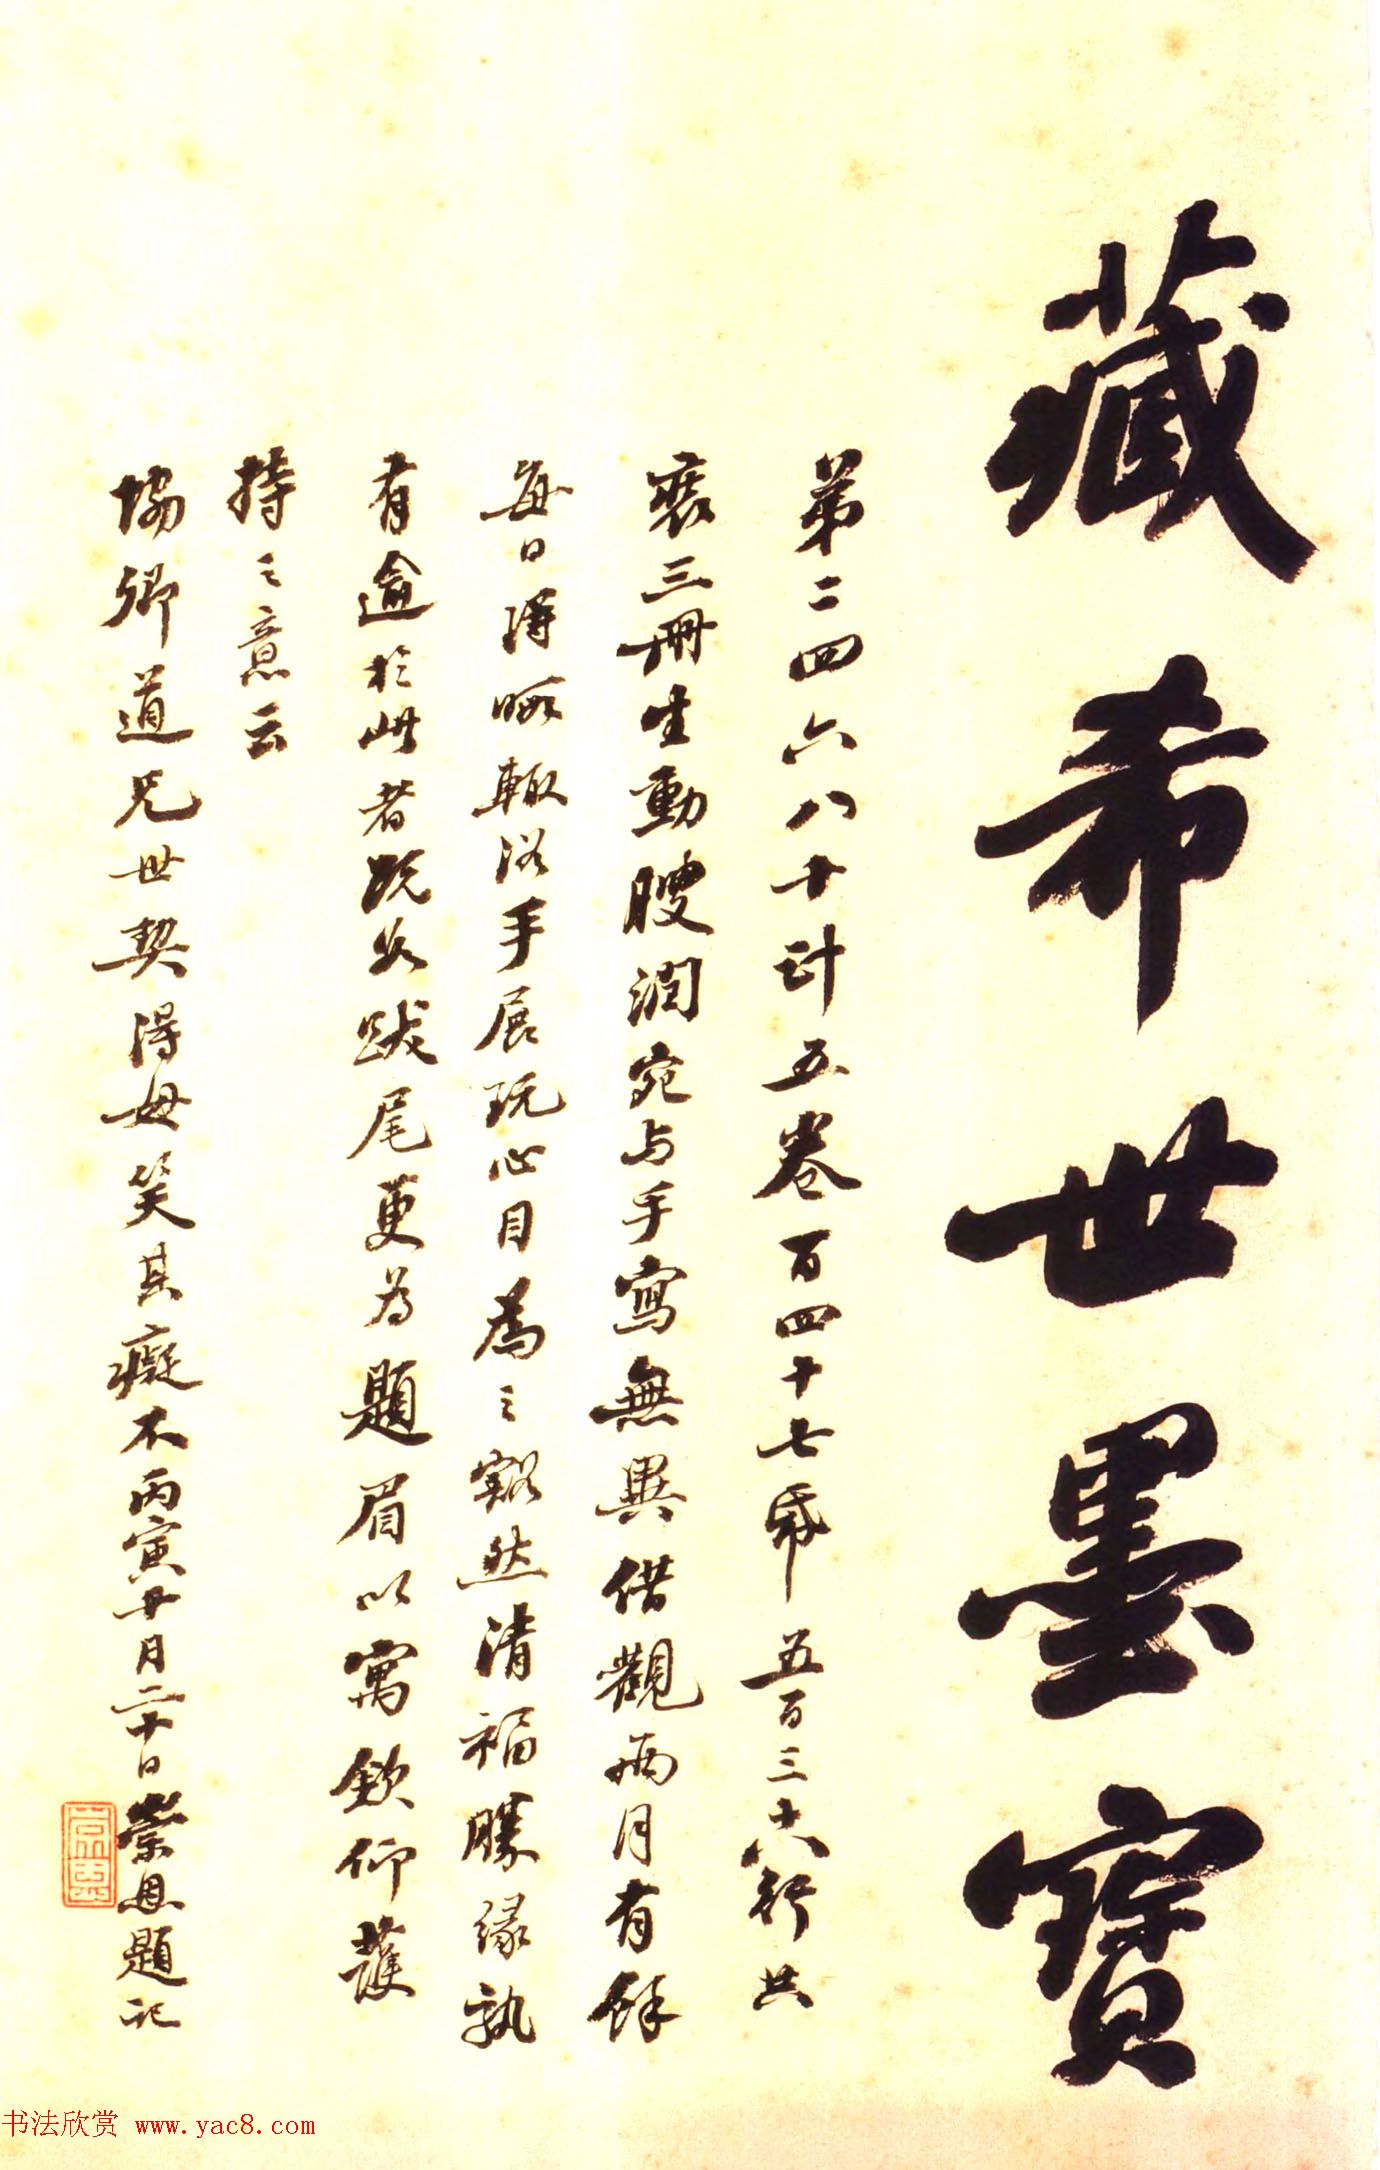 藏希世墨寶
第二四六八十計五卷百四十七帋五百三十六行共
裝三冊生動腴潤宛与手寫無異借觀兩月有餘
每日得暇輒浴手展玩心目為之豁然清福勝緣孰
有逾於此者既為跋尾更为題眉以寓欽仰護
持之意云
協卿道兄世契得毋笑其癡不丙寅十月二十日崇恩題記
崇恩
书法欣赏 www.yac8.com